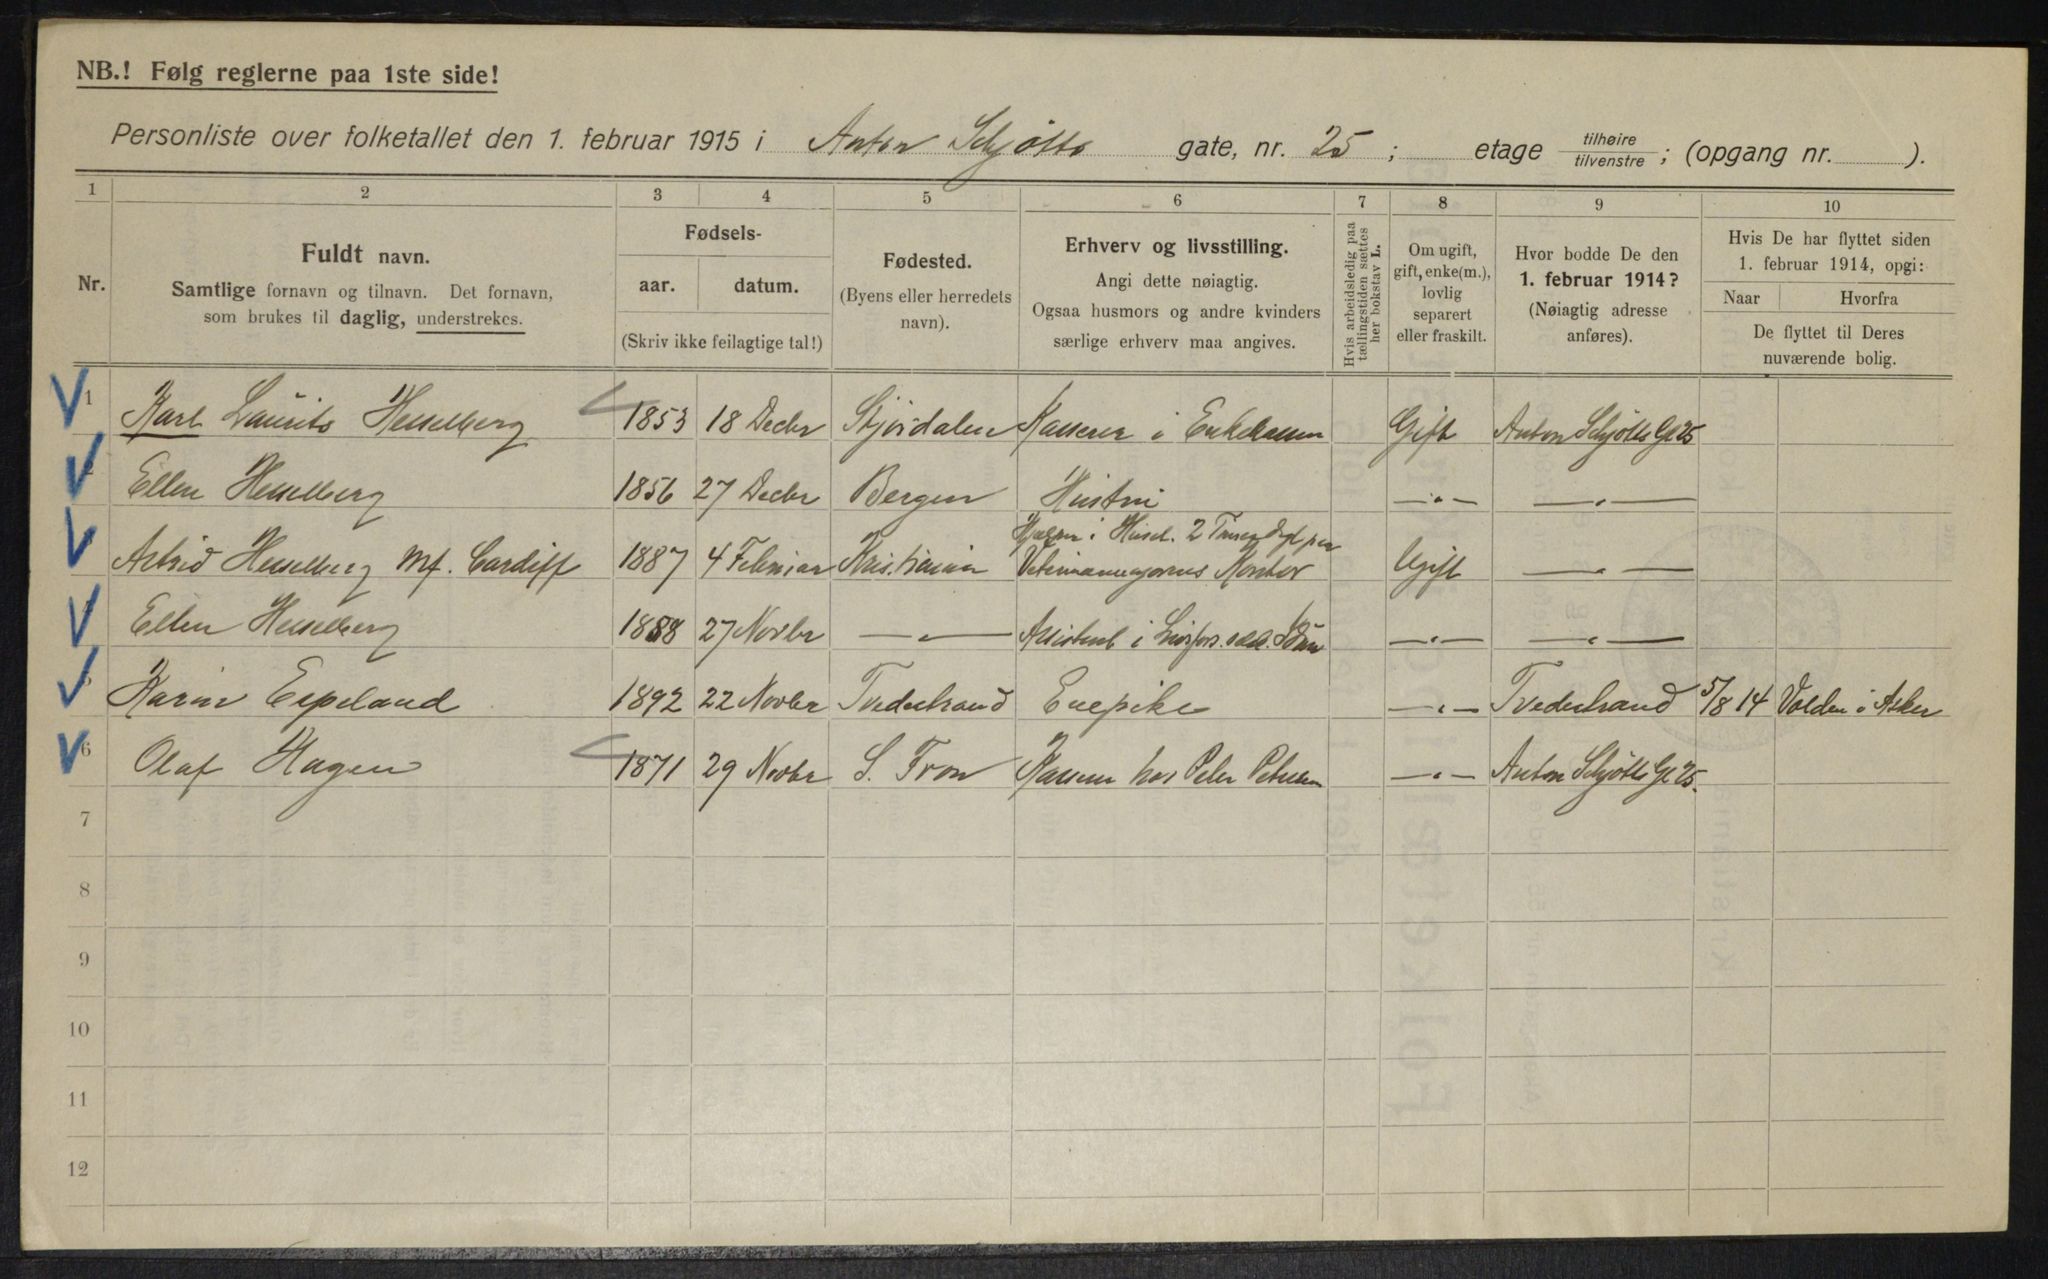 NB.! Følg reglerne paa 1ste side!
Personliste over folketallet den 1. februar 1915 i Anton Schjøtts gate, nr. 25 ; etage tilhøire / tilvenstre ; (opgang nr. ).
1 2 3 4 5 6 7 8 9 10
Nr.
Fuldt navn.
Samtlige fornavn og tilnavn. Det fornavn,
som brukes til daglig, understrekes.
Fødsels-
aar. datum.
(Skriv ikke feilagtige tal!)
Fødested.
(Byens eller herredets
navn).
Erhverv og livsstilling.
Angi dette nøiagtig.
Ogsaa husmors og andre kvinders
særlige erhverv maa angives.
Hvis arbeidsledig paa
tællingstiden sættes
her bokstav L.
Om ugift,
gift, enke(m.),
lovlig
separert
eller fraskilt.
Hvor bodde De den
1. februar 1914?
(Nøiagtig adresse
anføres).
Hvis De har flyttet siden
1. februar 1914, opgi:
Naar Hvorfra
De flyttet til Deres
nuværende bolig.
1 Karl Laurits Hesselberg 1853 18 Decbr Stjørdalen Kasserer i Enkekassen Gift Anton Schjøtts Gt 25
2 Ellen Hesselberg 1856 27 Decbr Bergen Hustru —"— —"—
Hjelper i Huset. 2 Timer dgl paa
Astrid Hesselberg Mf. Cardiff 1887 4 Februar Kristiania Kontor Ugift —"—
Ellen Hesselberg 1888 27 Novbr —"— Assistent i —"— —"—
Karin Espeland 1892 22 Novbr Tvedestrand Enepike —"— Tvedestrand 5/8 14 Valden i Asker
6 Olaf Hagen 1871 29 Novbr S. Fron Kasserer hos Peter Petersen —"— Anton Schjøtts Gt 25.
7
8
9
10
11
12